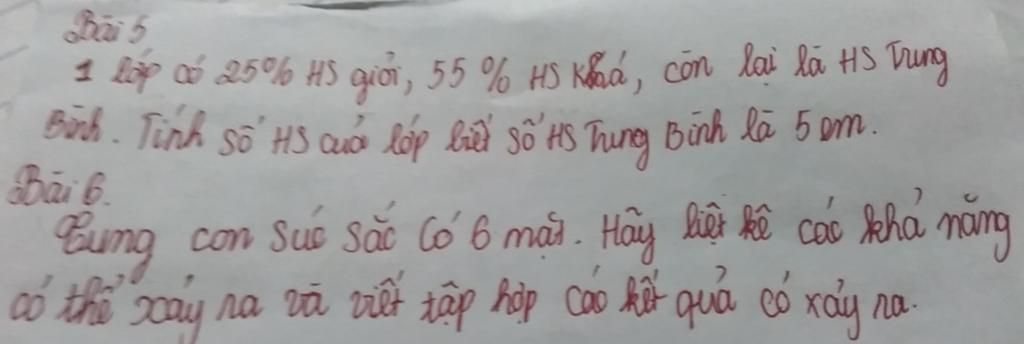 Bài 5
1 lớp có 25% HS giỏi, 55% HS Khá, còn lại là HS Trung
Bình. Tính số HS của lớp biết số HS Trung Bình là 5 em.
Bài 6.
Tung con súc sắc có 6 mặt. Hãy liệt kê các khả năng
có thể xảy ra và viết tập hợp các kết quả có xảy ra.